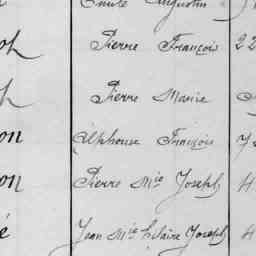 Emile Augustin
ph Pierre François 22
h Pierre Marie
on Alphonse François 7
on Pierre Mie Joseph 4
é Jean Mie hilaire Joseph 4